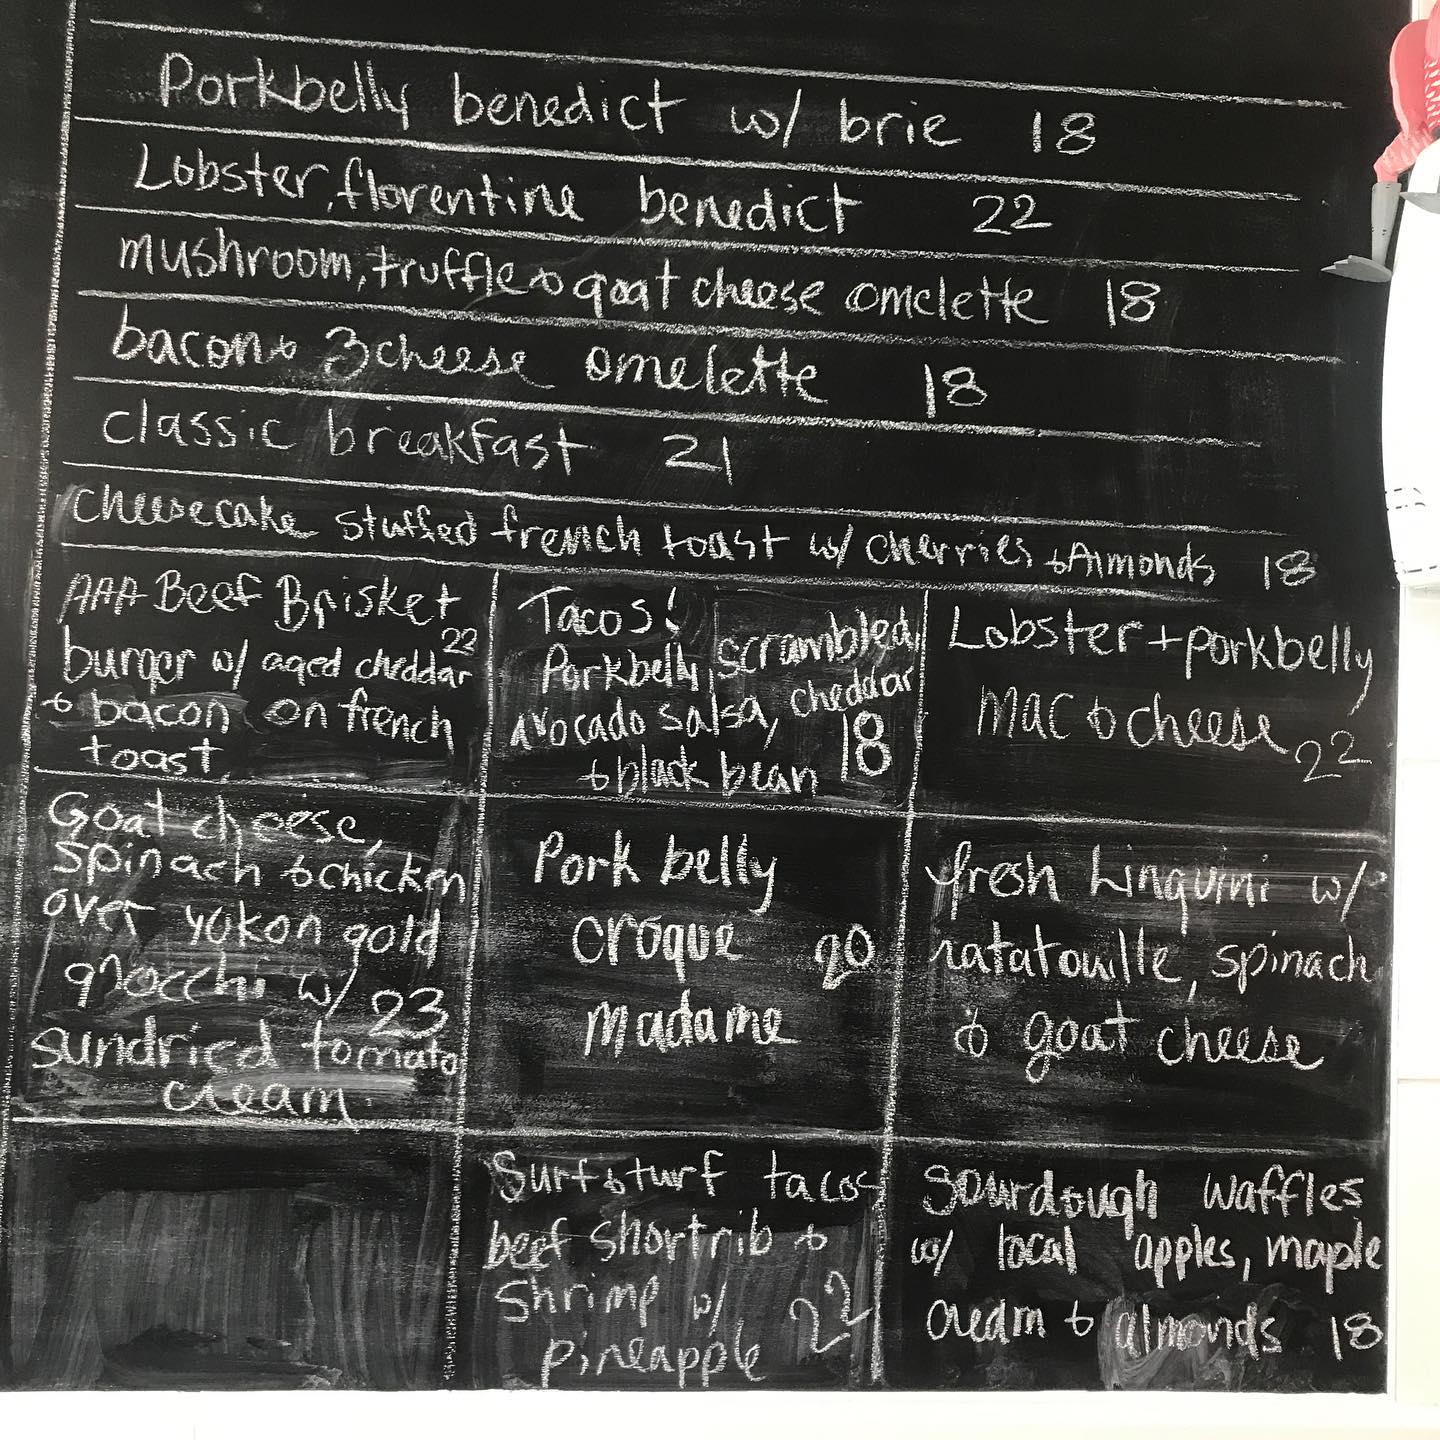 Porkbelly benedict w/ brie 18
Lobster, florentine benedict 22
mushroom, truffle & goat cheese omelette 18
bacon & 3 cheese omelette 18
classic breakfast 21
cheesecake stuffed french toast w/ cherries & Almonds 18
AAA Beef Brisket
burger w/ aged cheddar 22
& bacon on french
toast
Tacos!
Porkbelly, scrambled,
avocado salsa, cheddar
& black bean 18
Lobster + porkbelly
Mac & cheese 22
Goat cheese,
spinach & chicken
over yukon gold
gnocchi w/ 23
sundried tomato
cream
Pork belly
croque 20
madame
fresh Linguini w/
ratatouille, spinach
& goat cheese
Surf & turf tacos
beef shortrib &
Shrimp w/ 22
pineapple
Sourdough waffles
w/ local apples, maple
cream & almonds 18